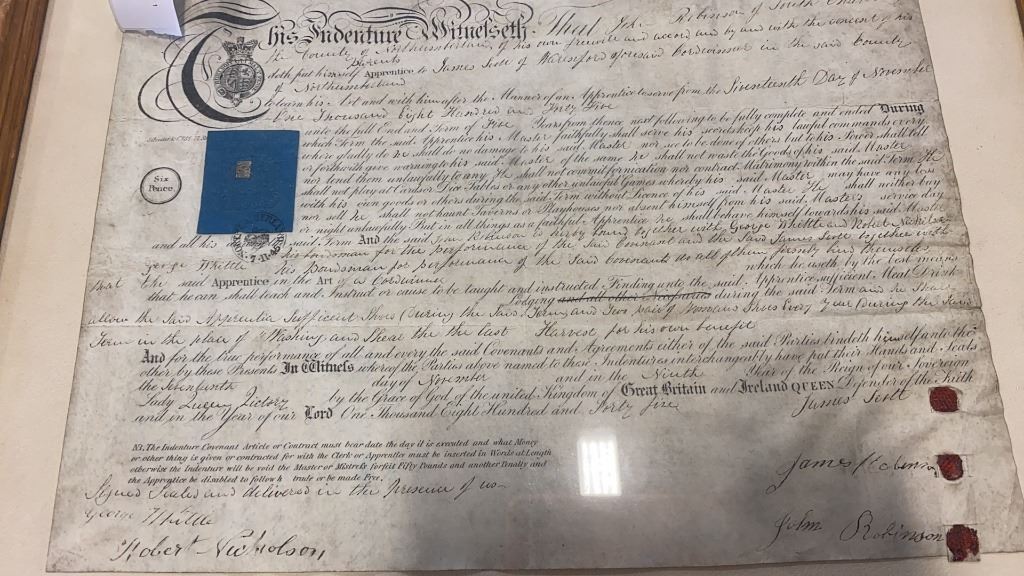 This Indenture Witnesseth That John Robinson of South
the County of Northumberland, of his own freewill and accord and by and with the consent of his
Parents
doth put himself Apprentice to James Scott of Cordwainer in the said County
of Northumberland
to learn his Art and with him after the Manner of an Apprentice to serve from the Seventeenth Day of November
One Thousand Eight Hundred and Forty Five
unto the full End and Term of Five Years from thence next following to be fully complete and ended During
which Term the said Apprentice his Master faithfully shall serve his secrets keep his lawful commands every
where gladly do he shall do no damage to his said Master nor see to be done of others but to his Power shall tell
or forthwith give warning to his said Master of the same he shall not waste the Goods of his said Master
nor lend them unlawfully to any he shall not commit fornication nor contract Matrimony within the said Term he
shall not play at Cards or Dice Tables or any other unlawful Games whereby his said Master may have any loss
with his own goods or others during the said Term without Licence of his said Master He shall neither buy
nor sell he shall not haunt Taverns or Playhouses nor absent himself from his said Masters service day
or night unlawfully But in all things as a faithful Apprentice he shall behave himself towards his said Master
Six
Pence
7·11·45
and all his said Term And the said John Robinson is herby bound together with George Whittle and Robert Nicholson
his bondsman for the performance of the said Covenant and the said James Scott together with
george Whittle his Bandsman for performance of the said Covenants do all of them
that the said Apprentice in the Art of a Cordwainer which he useth by the best means
that he can shall teach and Instruct or cause to be taught and instructed Finding unto the said Apprentice sufficient Meat Drink
Lodging and all other during the said Term and he Shall
allow the Said Apprentice Sufficent Shoes During the Said Term and two pair of Shoes Every Year During the Said
Term in the place of Washing and Shear the the last Harvest for his own benefit
And for the true performance of all and every the said Covenants and Agreements either of the said Parties bindeth himself unto the
other by these Presents In Witness whereof the Parties above named to these Indentures interchangeably have put their Hands and Seals
the Seventeenth day of November and in the Ninth Year of the Reign of our Sovereign
Lady Queen Victory by the Grace of God of the united Kingdom of Great Britain and Ireland QUEEN Defender of the Faith
and in the Year of our Lord One Thousand Eight Hundred and Forty five
James Scott
NB. The Indenture Covenant Article or Contract must bear date the day it is executed and what Money
or other thing is given or contracted for with the Clerk or Apprentice must be inserted in Words at Length
otherwise the Indenture will be void the Master or Mistress forfeit Fifty Pounds and another Penalty and
the Apprentice be disabled to follow h trade or be made Free.
Signed Sealed and delivered in the Presence of us
James
George Whittle
John Robinson
Robert Nicholson